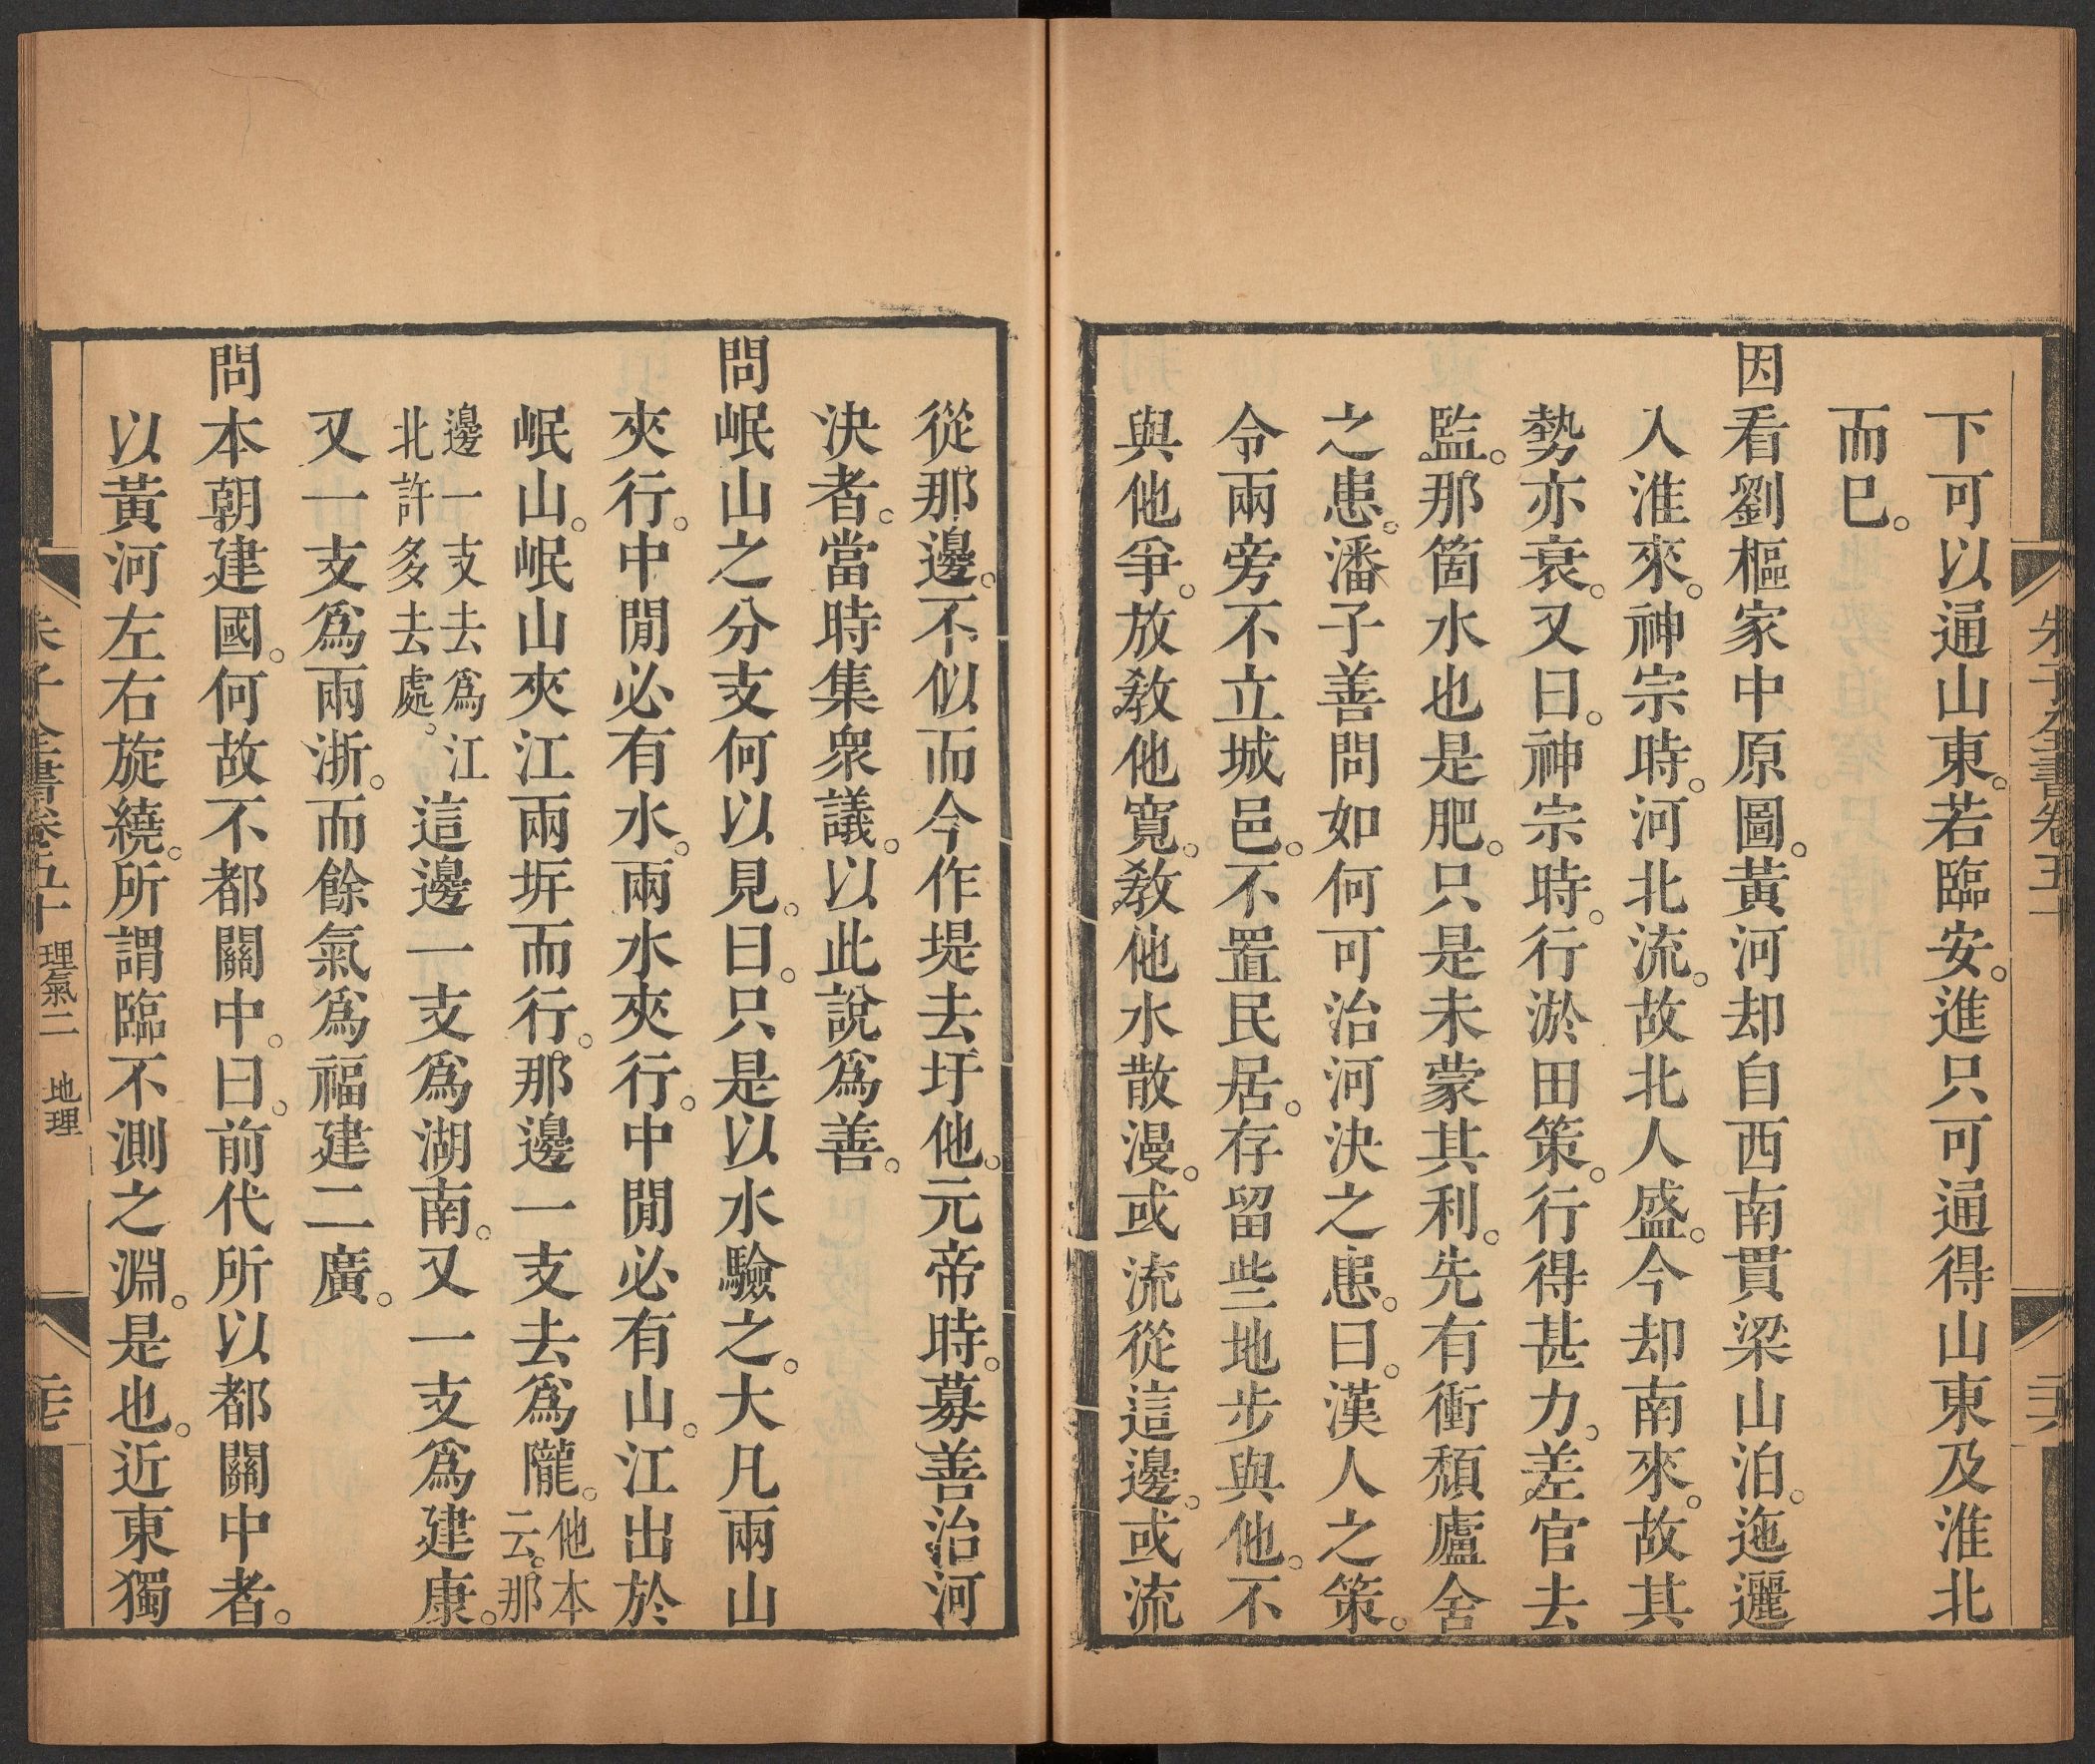 下可以通山東。若臨安。進只可通得山東及淮北
而巳。
因看劉樞家中原圖。黃河却自西南貫梁山泊。迤邐
入淮來。神宗時。河北流。故北人盛。今却南來。故其
勢亦衰。又曰。神宗時。行淤田策。行得甚力。差官去
監。那箇水也是肥。只是未蒙其利。先有衝頽廬舍
之患。潘子善問如何可治河決之患。曰。漢人之策。
令兩旁不立城邑。不置民居。存留些地步與他。不
與他爭。放敎他寬。敎他水散漫。或流從這邊。或流
朱子全書卷五十
從那邊。不似而今作堤去圩他。元帝時。募善治河
決者。當時集衆議。以此說爲善。
問岷山之分支何以見。曰。只是以水驗之。大凡兩山
夾行。中閒必有水。兩水夾行。中閒必有山。江出於
岷山。岷山夾江兩𡵻而行。那邊一支去爲隴。他本云。那
邊一支去爲江北許多去處。這邊一支爲湖南。又一支爲建康。
又一支爲兩浙。而餘氣爲福建二廣。
問本朝建國。何故不都關中。曰。前代所以都關中者。
以黃河左右旋繞。所謂臨不測之淵。是也。近東獨
朱子全書卷五十 理氣二 地理